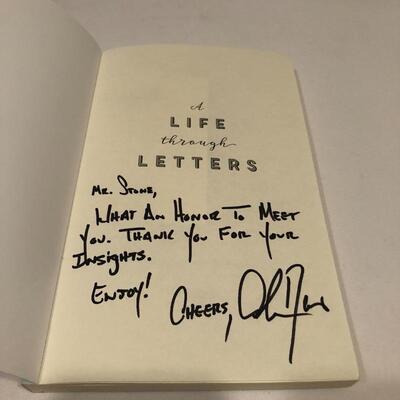 A
LIFE
through
LETTERS
Mr. Stone,
What An Honor To Meet
You. Thank You For Your
Insights.
Enjoy!
Cheers,